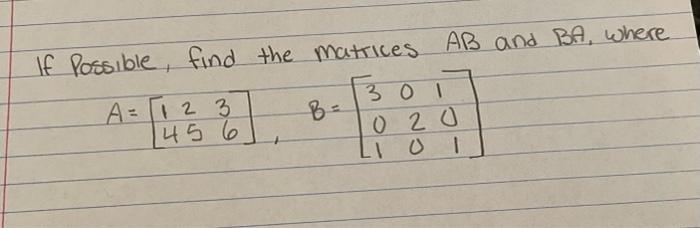 If Possible, find the matrices AB and BA, where
A = [1 2 3 B = [3 0 1
4 5 6], 0 2 0
1 0 1]